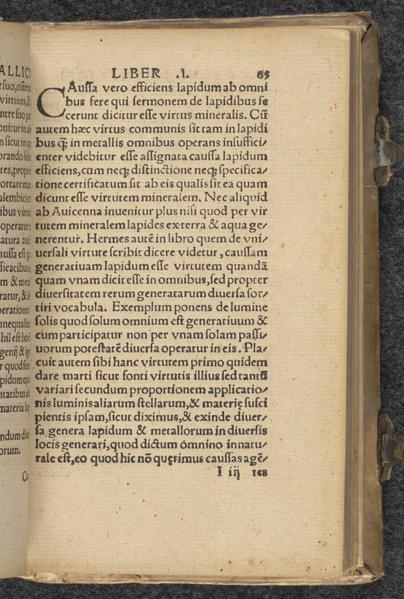 LIBER .I. 65
CAussa vero efficiens lapidum ab omni
bus fere qui sermonem de lapidibus fe
cerunt dicitur esse virtus mineralis. Cū
autem hæc virtus communis sit tam in lapidi
bus q̃ in metallis omnibus operans insuffici
enter videbitur esse assignata caussa lapidum
efficiens, cum neq; distinctione neq; specifica
tione certificatum sit ab eis qualis sit ea quam
dicunt esse virtutem mineralem. Nec aliquid
ab Auicenna inuenitur plus nisi quod per vir
tutem mineralem lapides ex terra & aqua ge
nerentur. Hermes autē in libro quem de vni
uersali virtute scribit dicere videtur, caussam
generatiuam lapidum esse virtutem quandā
quam vnam dicit esse in omnibus, sed propter
diuersitatem rerum generatarum diuersa sor
tiri vocabula. Exemplum ponens de lumine
solis quod solum omnium est generatiuum &
cum participatur non per vnam solam passi
uorum potestatē diuersa operatur in eis. Pla
cuit autem sibi hanc virtutem primo quidem
dare marti sicut fonti virtutis illius sed tantū
variari secundum proportionem applicatio
nis luminis aliarum stellarum, & materię susci
pientis ipsam, sicut diximus, & exinde diuer
sa genera lapidum & metallorum in diuersis
locis generari, quod dictum omnino innatu
rale est, eo quod hic nō quęrimus caussas agē
I iij tes